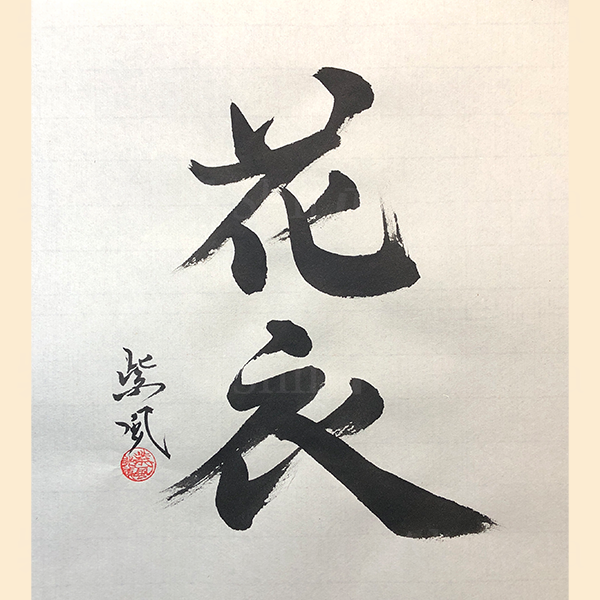 花衣
紫風